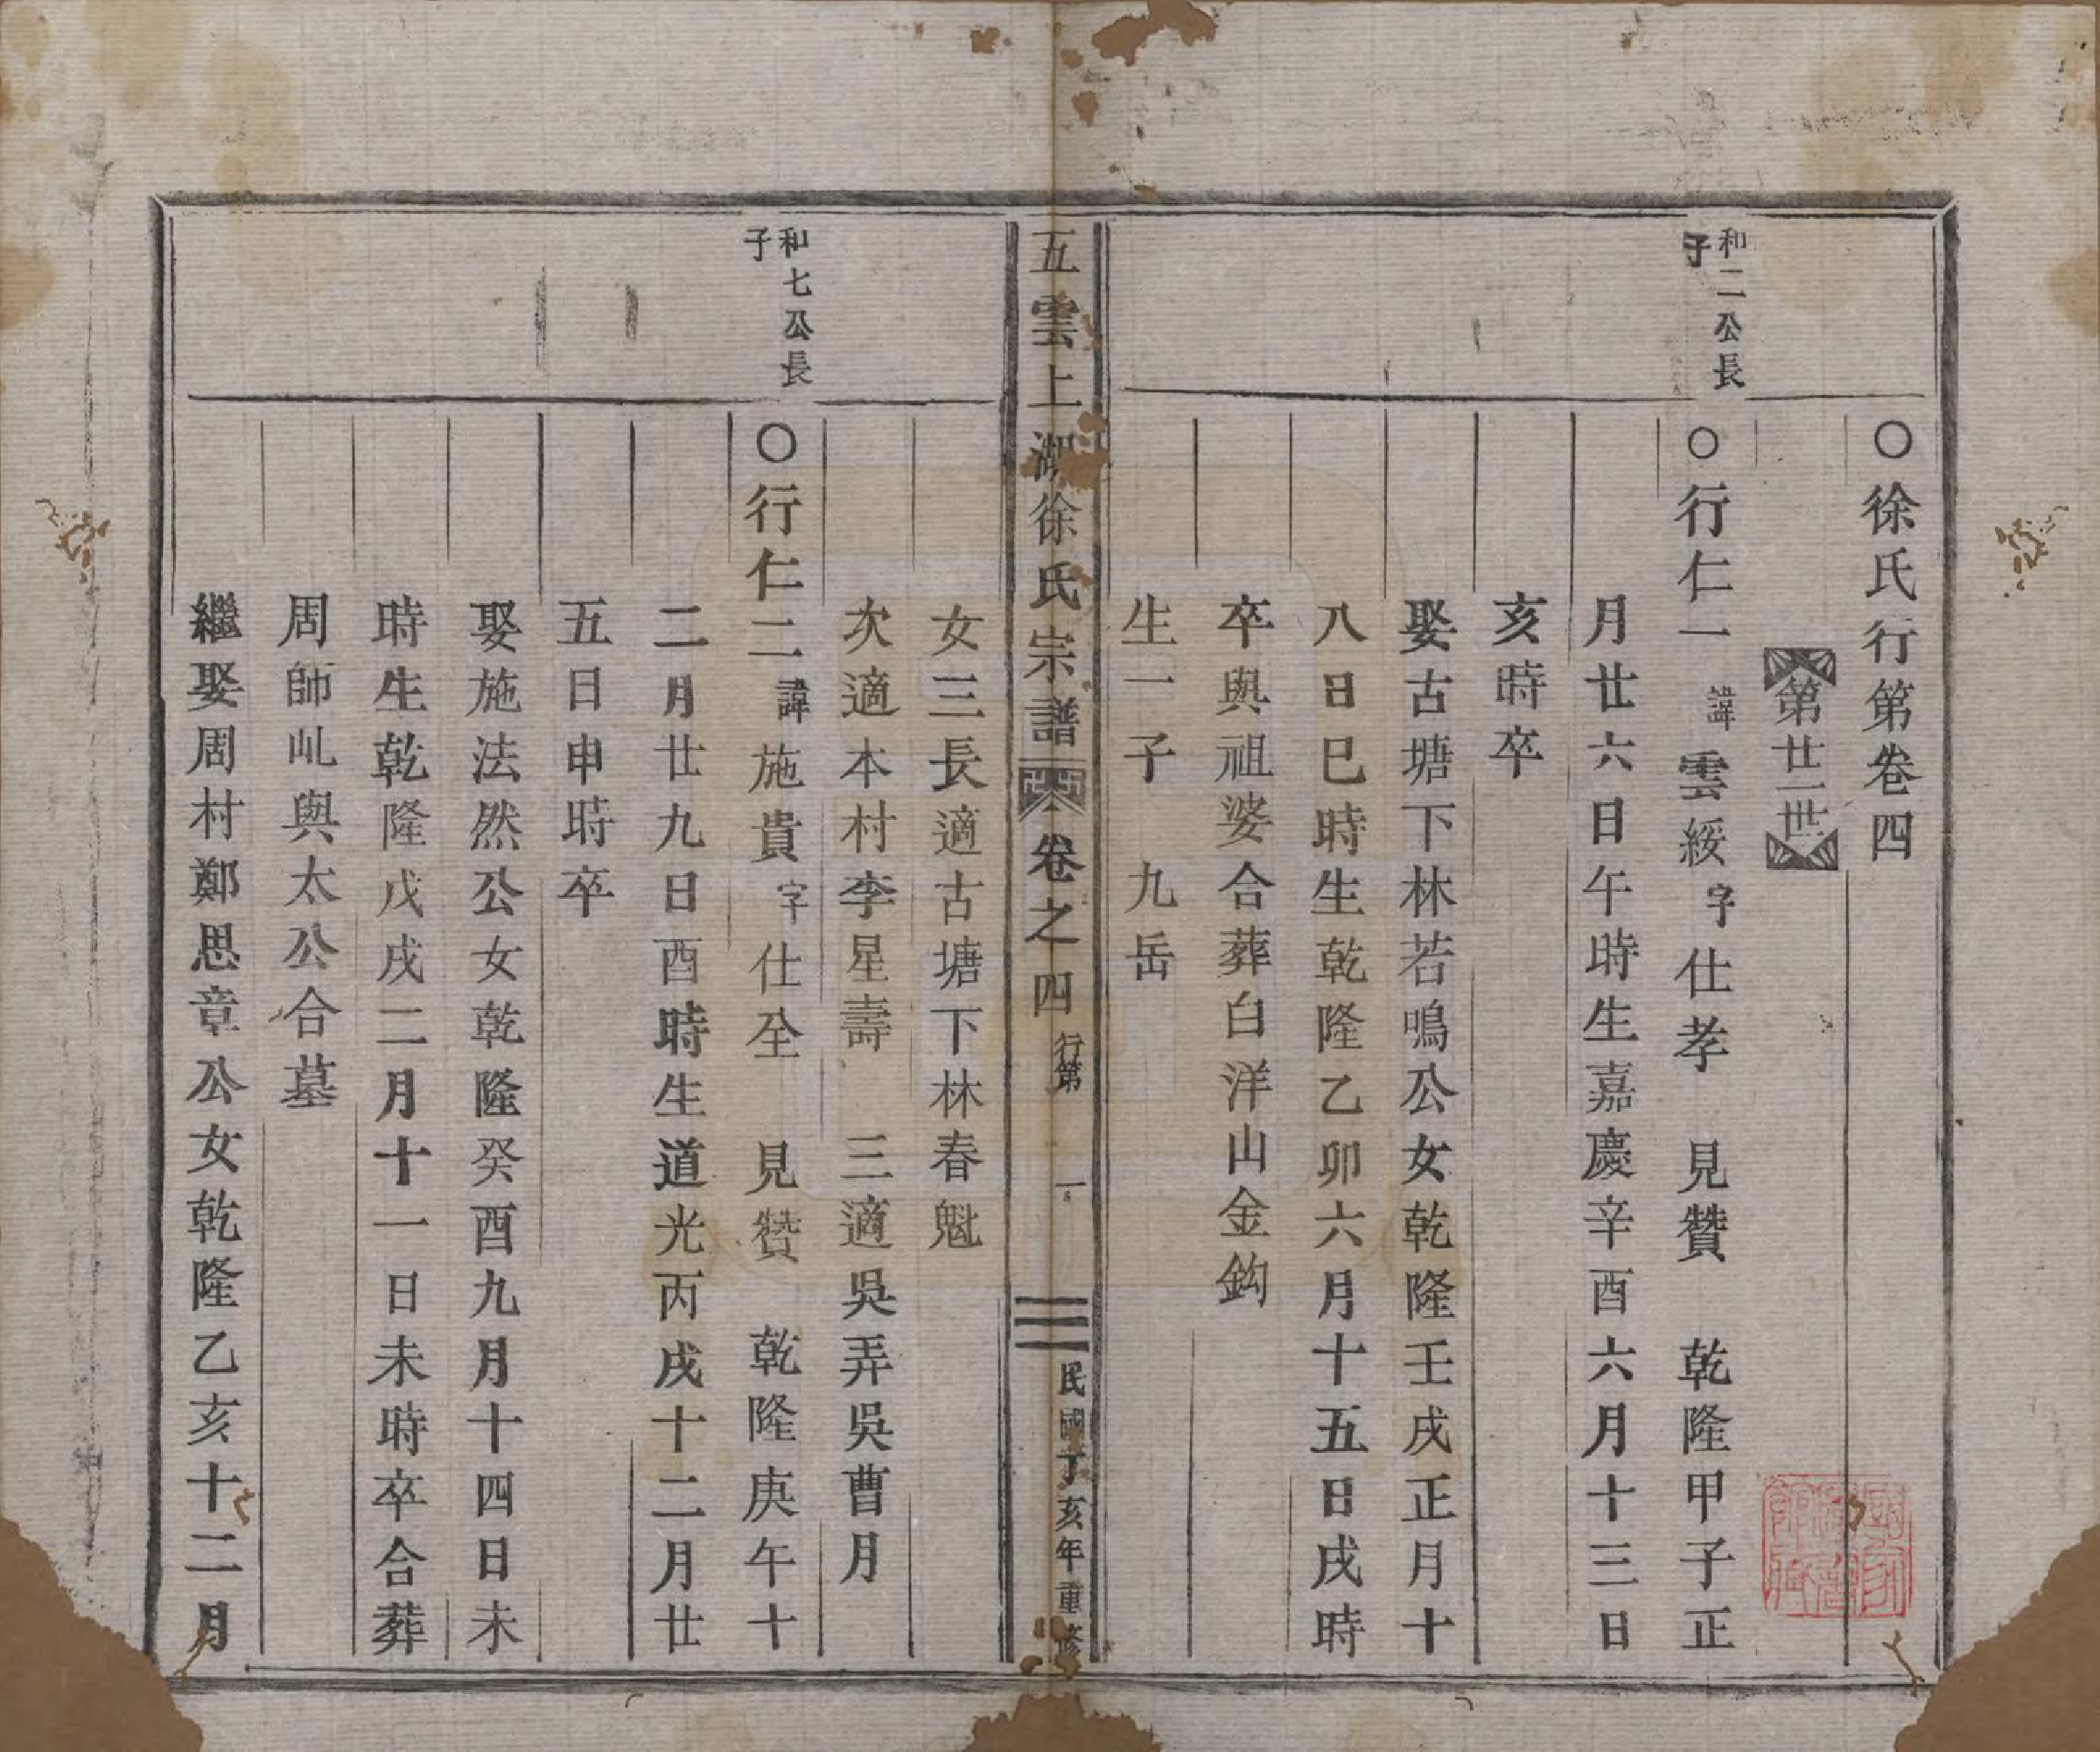 ○徐氏行第卷四
第廿一世
和二公長
子
○行仁一 諱雲綏字仕孝 見贊 乾隆甲子正
月廿六日午時生嘉慶辛酉六月十三日
亥時卒
娶古塘下林若鳴公女乾隆壬戌正月十
八日巳時生乾隆乙卯六月十五日戌時
卒與祖婆合葬白洋山金鈎
生一子 九岳
五雲上湖徐氏宗譜 卷之四 行第 一 民國丁亥年重修
女三長適古塘下林春魁
次適本村李星壽 三適吳弄吳曹月
和七公長
子
○行仁二諱施貴字仕全 見贊 乾隆庚午十
二月廿九日酉時生道光丙戌十二月廿
五日申時卒
娶施法然公女乾隆癸酉九月十四日未
時生乾隆戊戌二月十一日未時卒合葬
周師乢與太公合墓
繼娶周村鄭思章公女乾隆乙亥十二月